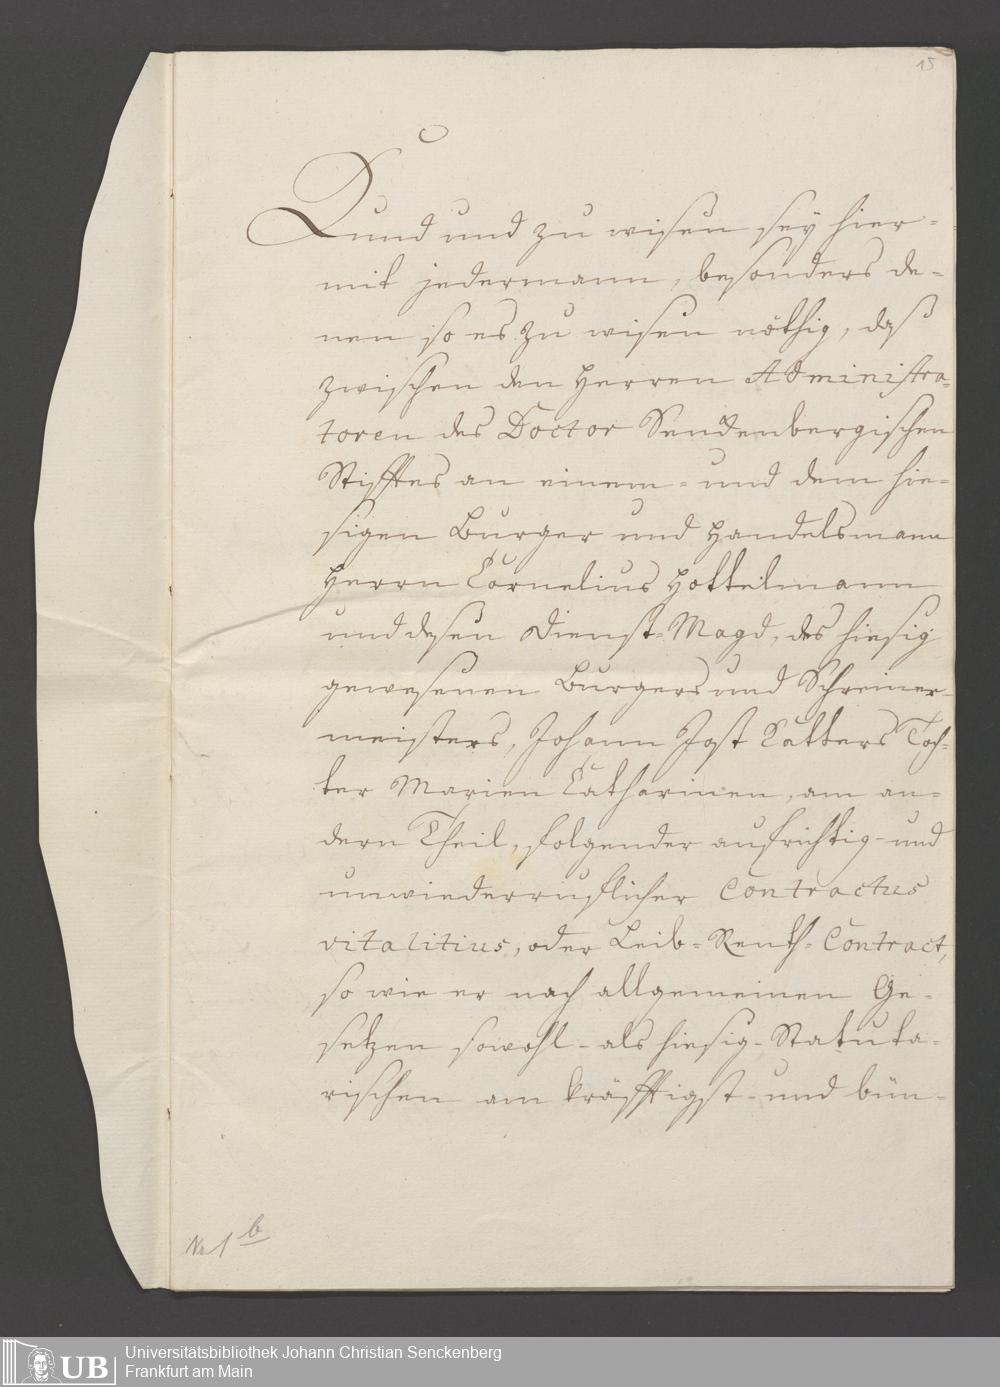 15
Kund und zu wisen seÿ hier-
mit jedermann, besonders de-
nen so es zu wisen nöthig, daß
zwischen den Herren Administra-
toren des Doctor Senckenbergischen
Stifftes an einem- und dem hie-
sigen Burger und Handelsmann
Herrn Cornelius Hottelmann
und desen Dienst-Magd, des hiesig
gewesenen Burgers und Schreiner-
meisters, Johann Jost Kätters Toch-
ter Marien Catharinen, am an-
dern Theil, folgender aufrichtig- und
unwiederruflicher Contractus
vitalitius, oder Leib-Renth-Contract,
so wie er nach allgemeinen Ge-
setzen sowohl- als hiesig-Statuta-
rischen am kräfftigst- und bün-
No 1 b
UB Universitätsbibliothek Johann Christian Senckenberg
Frankfurt am Main